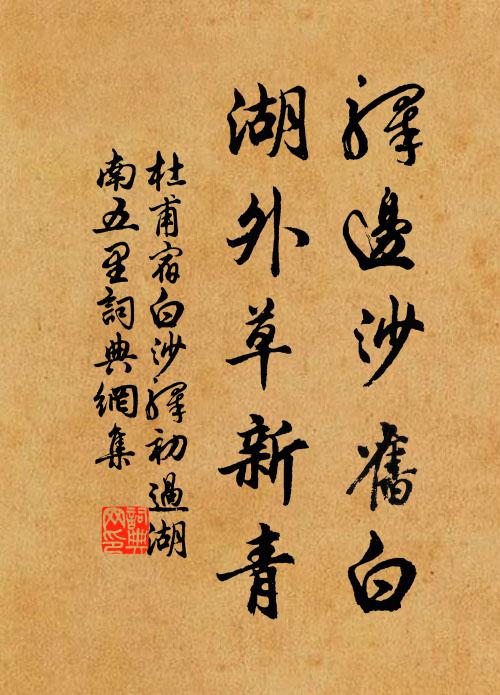 驛邊沙舊白
湖外草新青
杜甫宿白沙驛初過湖
南五里詞典網集
詞典网印